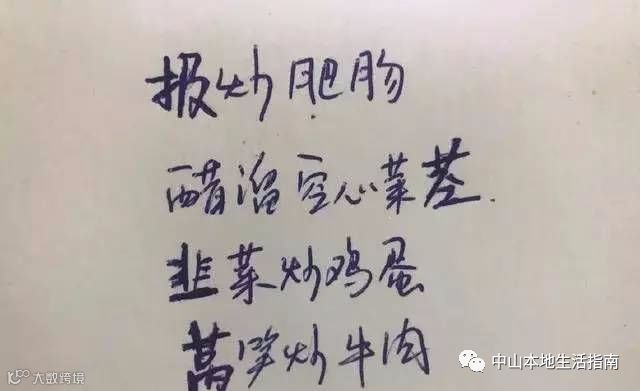 报炒肥肠
醋溜空心菜茎
韭菜炒鸡蛋
莴笋炒牛肉
中山本地生活指南
大数跨境